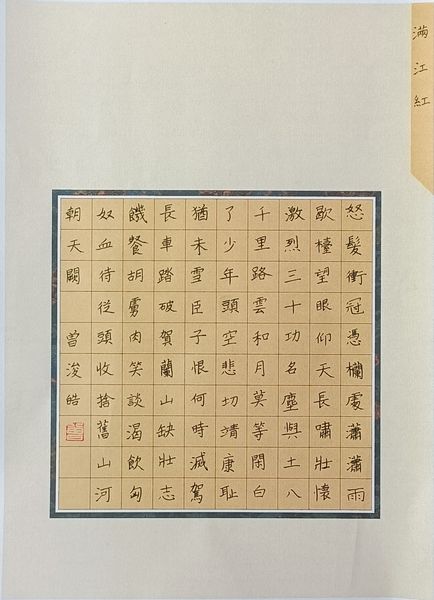 滿江紅
怒髮衝冠憑欄處瀟瀟雨
歇擡望眼仰天長嘯壯懷
激烈三十功名塵與土八
千里路雲和月莫等閑白
了少年頭空悲切靖康耻
猶未雪臣子恨何時滅駕
長車踏破賀蘭山缺壯志
饑餐胡虜肉笑談渴飲匈
奴血待從頭收捨舊山河
朝天闕 曾浚皓